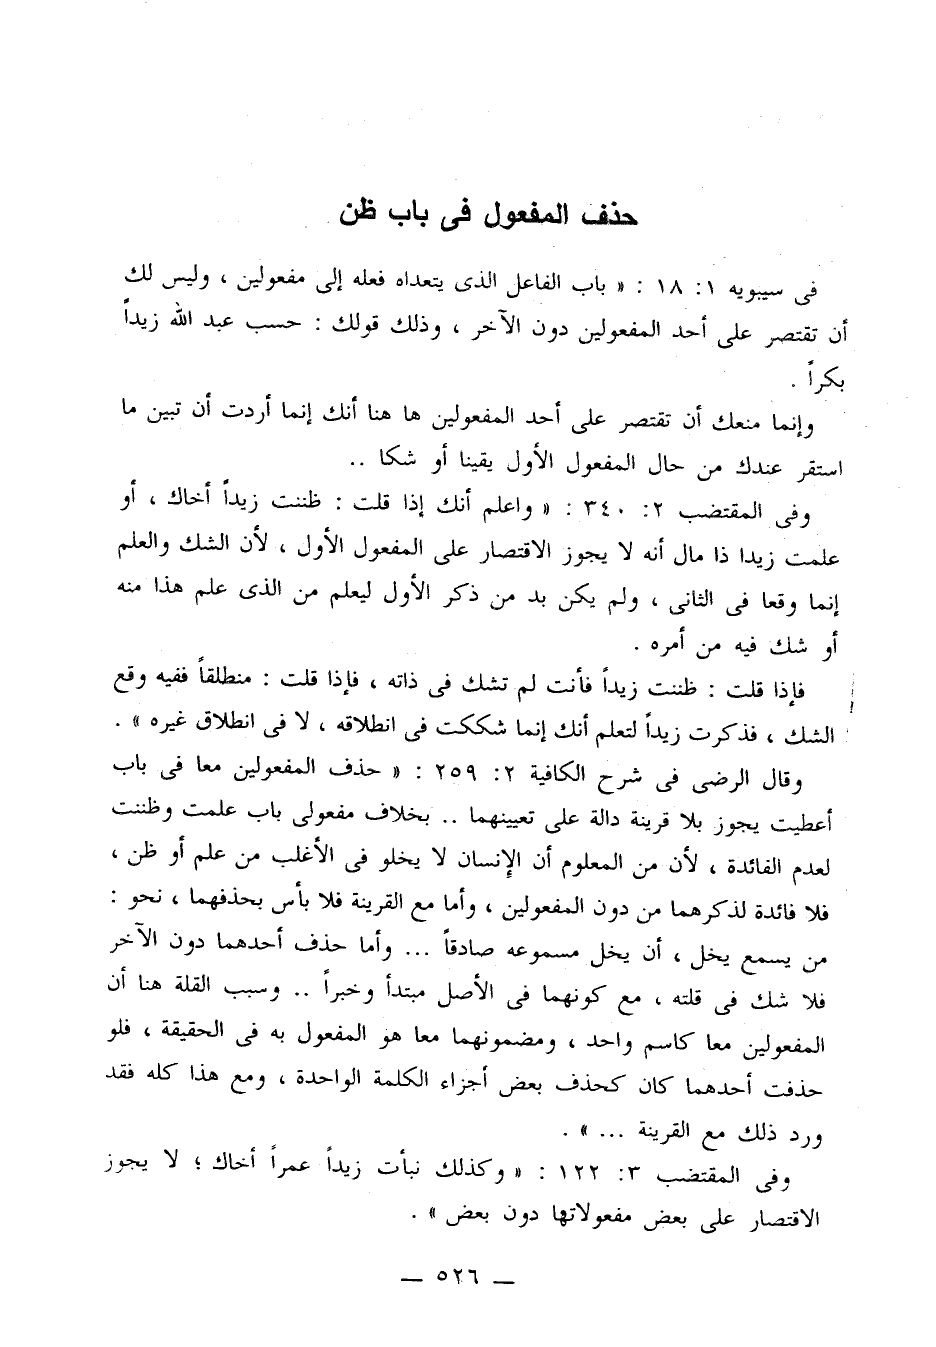 حذف المفعول فى باب ظن
فى سيبويه ١: ١٨ : « باب الفاعل الذى يتعداه فعله إلى مفعولين ، وليس لك
أن تقتصر على أحد المفعولين دون الآخر ، وذلك قولك : حسب عبد الله زيداً
بكراً .
وإنما منعك أن تقتصر على أحد المفعولين ها هنا أنك إنما أردت أن تبين ما
استقر عندك من حال المفعول الأول يقينا أو شكا ..
وفى المقتضب ٢: ٣٤٠ : « واعلم أنك إذا قلت : ظننت زيداً أخاك ، أو
علمت زيدا ذا مال أنه لا يجوز الاقتصار على المفعول الأول ، لأن الشك والعلم
إنما وقعا فى الثانى ، ولم يكن بد من ذكر الأول ليعلم من الذى علم هذا منه
أو شك فيه من أمره .
فإذا قلت : ظننت زيداً فأنت لم تشك فى ذاته ، فإذا قلت : منطلقاً ففيه وقع
الشك ، فذكرت زيداً لتعلم أنك إنما شككت فى انطلاقه ، لا فى انطلاق غيره » .
وقال الرضى فى شرح الكافية ٢: ٢٥٩ : « حذف المفعولين معا فى باب
أعطيت يجوز بلا قرينة دالة على تعيينهما .. بخلاف مفعولى باب علمت وظننت
لعدم الفائدة ، لأن من المعلوم أن الإنسان لا يخلو فى الأغلب من علم أو ظن ،
فلا فائدة لذكرهما من دون المفعولين ، وأما مع القرينة فلا بأس بحذفهما ، نحو :
من يسمع يخل ، أن يخل مسموعه صادقاً ... وأما حذف أحدهما دون الآخر
فلا شك فى قلته ، مع كونهما فى الأصل مبتدأ وخبراً .. وسبب القلة هنا أن
المفعولين معا كاسم واحد ، ومضمونهما معا هو المفعول به فى الحقيقة ، فلو
حذفت أحدهما كان كحذف بعض أجزاء الكلمة الواحدة ، ومع هذا كله فقد
ورد ذلك مع القرينة ... » .
وفى المقتضب ٣: ١٢٢ : « وكذلك نبأت زيداً عمراً أخاك ؛ لا يجوز
الاقتصار على بعض مفعولاتها دون بعض » .
— ٥٢٦ —